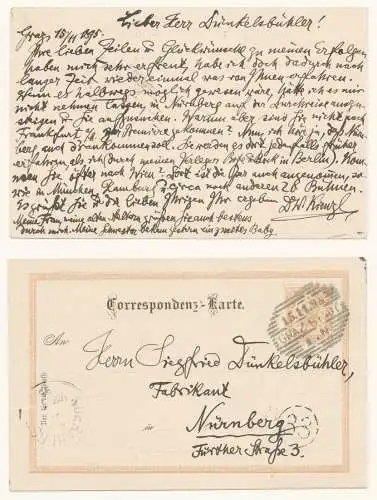 Lieber Herr Dünkelsbühler!
Graz 15/11 895.
Ihre lieben Zeilen & Glückwünsche zu meinen Erfolgen
haben mich sehr erfreut, habe ich doch dadurch nach
langer Zeit wieder einmal was von Ihnen erfahren.
Wenn es halbwegs möglich gewesen wäre, hätte ich es mir
nicht nehmen lassen, in Nürnberg auf der Durchreise auszu-
steigen & Sie aufzusuchen. Warum aber sind Sie nicht nach
Frankfurt z. Premiere gekommen? Nun, ich hoffe ja, daß Nürn-
berg auch drankommen soll. Sie werden es dort jedenfalls früher
erfahren, als ich durch meinen Verleger Bote & Bock in Berlin). Kom-
men Sie öfter nach Wien? Dort ist die Oper auch angenommen, so-
wie in München, Hamburg & circa noch anderen 26 Bühnen.
Es grüßt Sie & die lieben Ihrigen Ihr ergebener
DW Kienzl
Meine Frau, meine alten Eltern grüßen Sie auch bestens
durch mich. Meine Schwester bekam gestern ein zweites Baby.
Correspondenz-Karte.
15.11.95
GRAZ STADT
An Herrn Siegfried Dünkelsbühler,
Fabrikant
in Nürnberg
Fürther Straße 3.